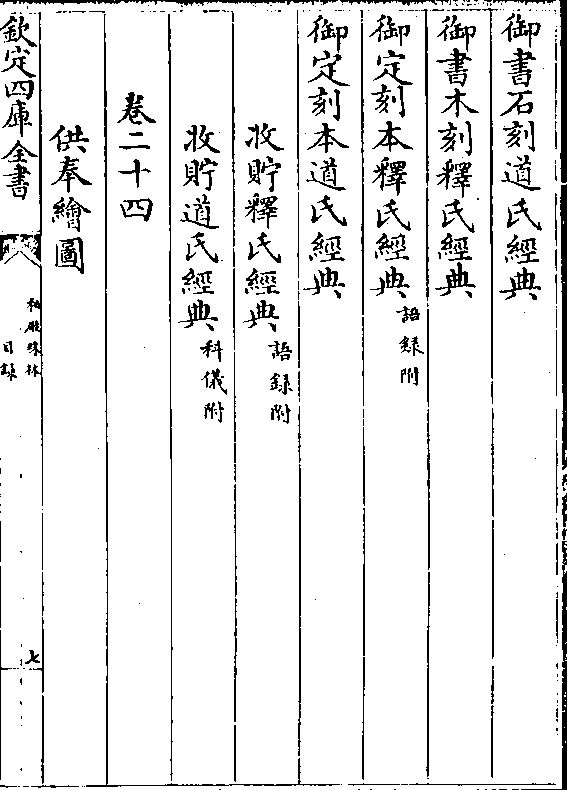 御書石刻道氏經典
御書木刻釋氏經典
御定刻本釋氏經典語録附
御定刻本道氏經典
收貯釋氏經典語録附
收貯道氏經典科儀附
卷二十四
供奉繪圖
欽定四庫全書
祕殿珠林
目録
七